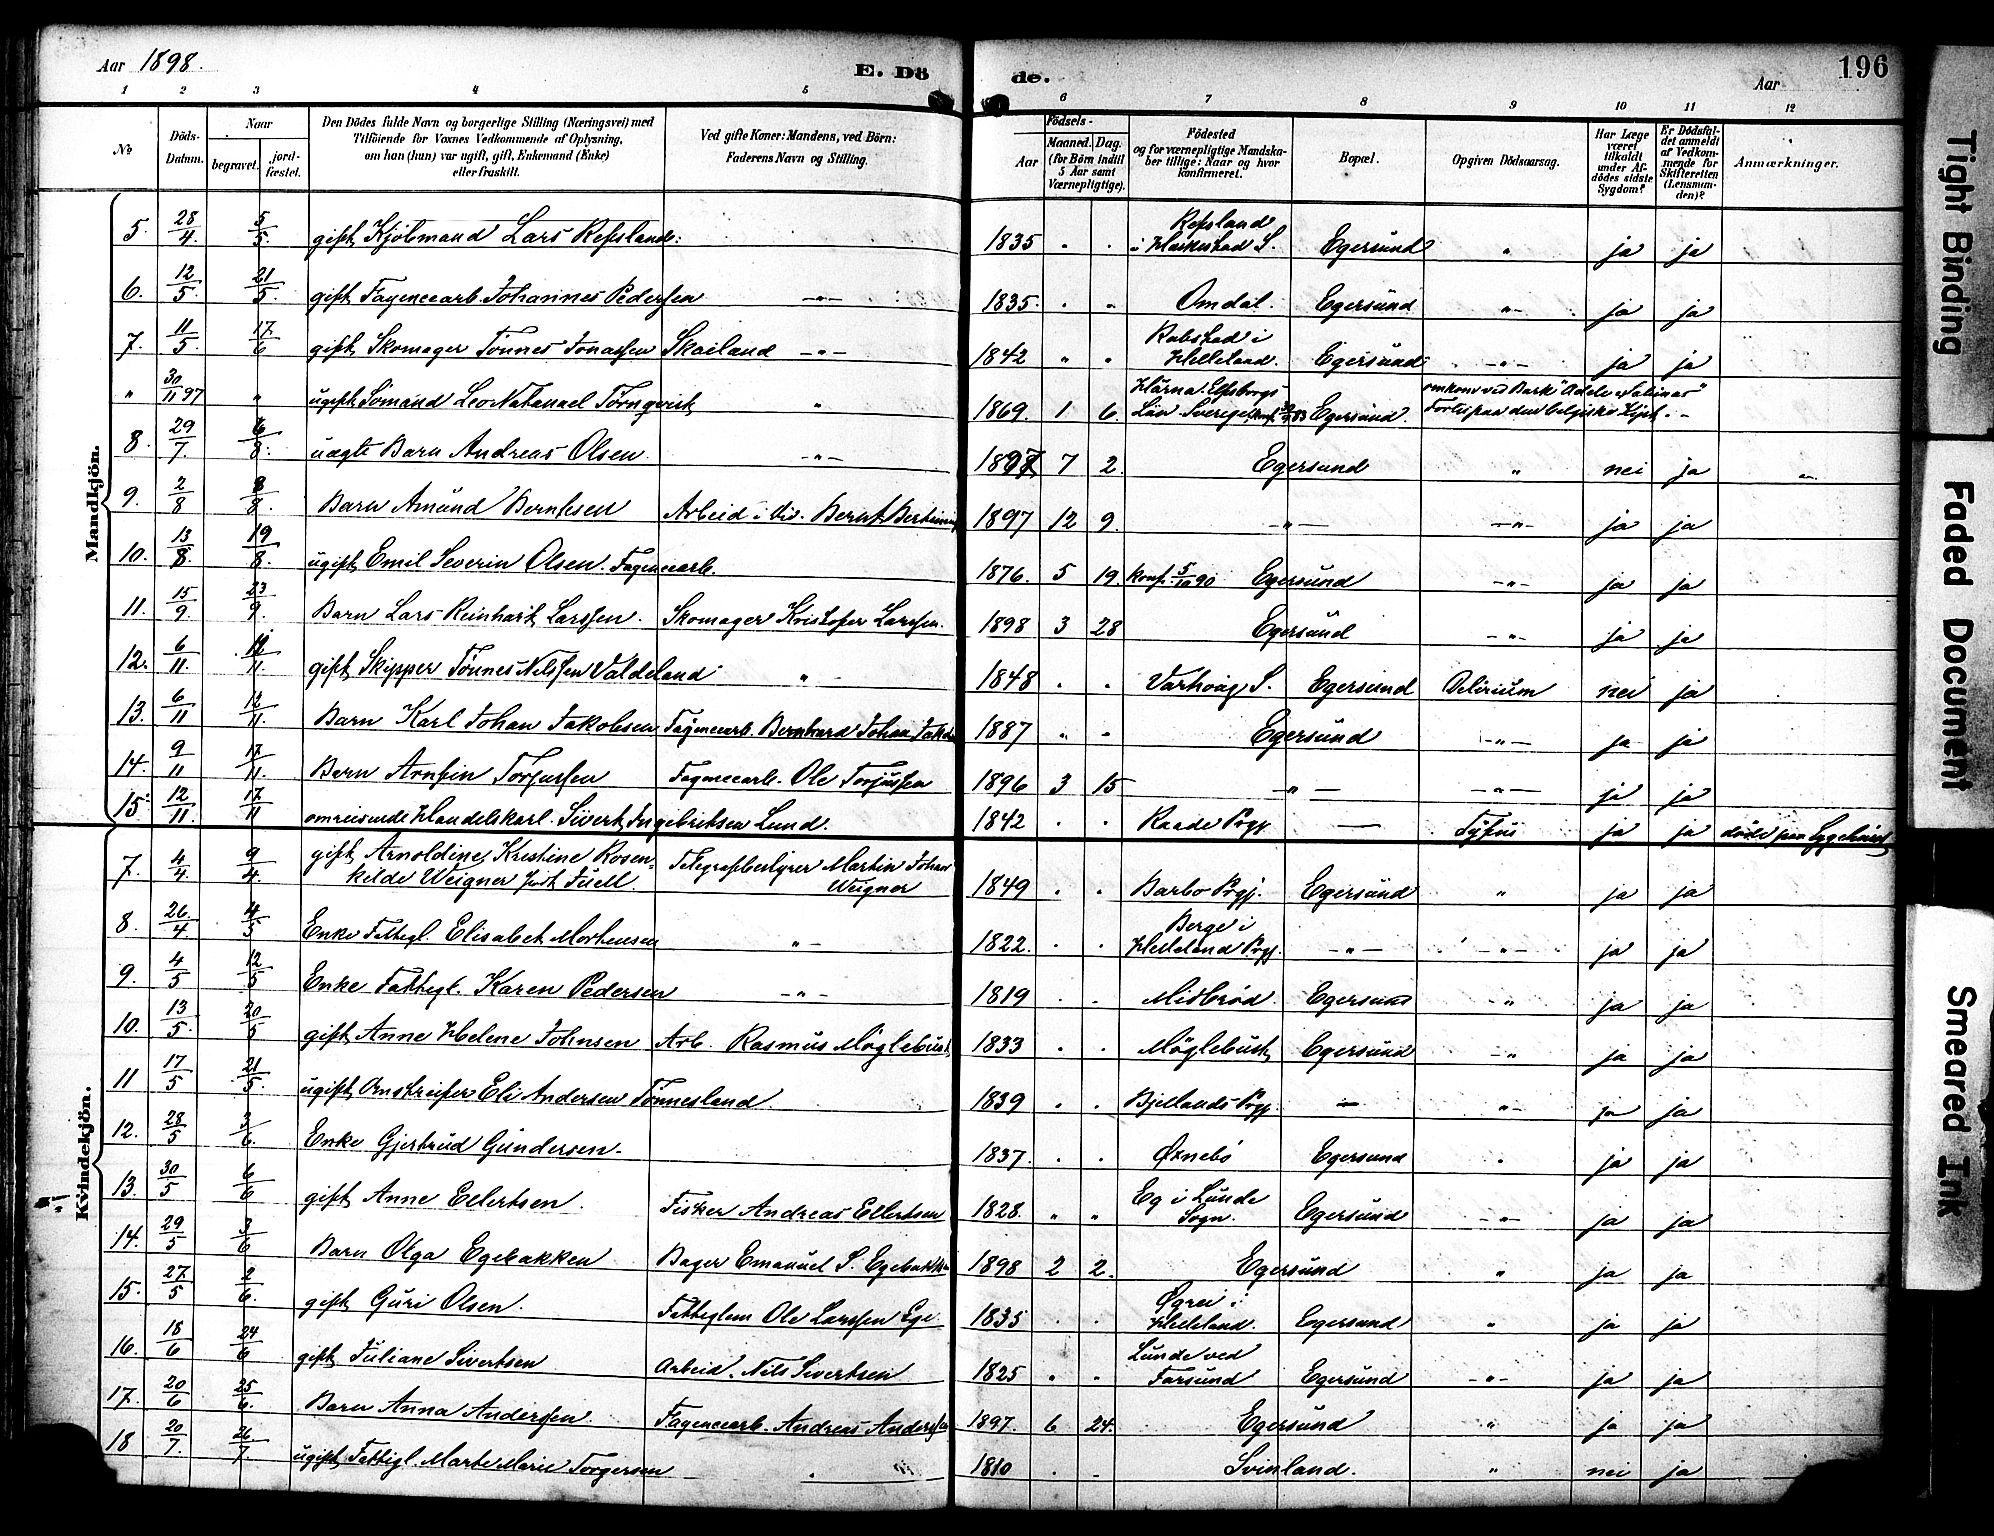 Aar 1898.
E. Dö
de.
Aar
196
1 2 3 4 5 6 7 8 9 10 11 12
No
Döds-Datum.
Naar
begravet.
jord-fæstet.
Den Dödes fulde Navn og borgerlige Stilling (Næringsvei) med
Tilföiende for Voxnes Vedkommende af Oplysning,
om han (hun) var ugift, gift, Enkemand (Enke)
eller fraskilt.
Ved gifte Koner: Mandens, ved Börn:
Faderens Navn og Stilling.
Födsels-
Aar
Maaned. Dag.
(for Börn indtil
5 Aar samt
Værnepligtige).
Födested
og for værnepligtige Mandska-
ber tillige: Naar og hvor
konfirmeret.
Bopæl.
Opgiven Dödsaarsag.
Har Læge
været
tilkaldt
under Af-
dödes sidste
Sygdom?
Er Dödsfal-
det anmeldt
af Vedkom-
mende for
Skifteretten
(Lensman-
den)?
Anmærkninger.
Mandkjön.
5. 28/4. 5/5. gift Kjöbmand Lars Repsland. 1835 " " Repsland i Heskestad S. Egersund " ja ja
6. 12/5. 21/5. gift Fayencearb. Johannes Pedersen -"- 1835. " " Omdal. Egersund -"- ja ja
7. 11/5. 17/6 gift Skomager Tönnes Jonassen Skailand -"- 1842 " " Robstad i Helleland. Egersund -"- ja ja
" 30/11 97 " ugift Sömand Leo Natanael Törnqvist " 1869. 1 6. Län Sverige, Egersund. omkom ved Bark "Adele
8. 29/7. 6/8. uægte Barn Andreas Olsen. -"- 1897 7 2. Egersund " nei ja
9. 2/8 8/8. Barn Amund Berntsen Arbeid i div. Bernt 1897 12 9. -"- -"- ja ja
10. 13/8. 19/8. ugift Emil Severin Olsen. Fayencearb. 1876. 5 19. konf. 5/10 90 Egersund -"- ja ja
11. 15/9. 23/9. Barn Lars Reinhart Larssen. Skomager Kristofer Larssen. 1898 3 28 Egersund -"- ja ja
12. 6/11. 12/11. gift Skipper Tönnes Nilssen Valdeland " 1848 " " Varhoug S. Egersund Delirium nei ja
13. 6/11 12/11. Barn Karl Johan Jakobsen Fayencearb. Bernhard Johan 1887 " " Egersund -"- ja ja
14. 9/11 17/11. Barn Arnfin Torjussen Fayencearb. Ole Torjussen 1896 3 15 -"- -"- ja ja
15. 12/11. 17/11 omreisende Handelskarl. Sivert Ingebriktsen Lund. 1842 . . Raade Prgj. — Tyfus ja ja döde paa Sygehuset
Kvindekjön.
7. 4/4. 9/4. gift Arnoldine Kristine Rosen-
kilde Weigner født Juell. Telegrafbestyrer Martin Johan
Weigner 1849 . . Barbo Prgj. Egersund " ja ja
8. 26/4 4/5 Enke Fattigl. Elisabet Mortensen "- 1822. . . Berge i Helleland Prgj. -"- -"- ja ja
9. 4/5 12/5 Enke Fattigl. Karen Pedersen -"- 1819 . . Midbröd. Egersund -"- ja ja
10. 13/5. 20/5 gift Anne Helene Johnsen Arb. Rasmus Möglebust 1833 . . Möglebust Egersund -"- ja ja
11 17/5 21/5. ugift Omstreifer Eli Andersen Tönnesland. 1839 . . Bjellands Prgj. — "- ja ja
12. 28/5 3/6. Enke Gjertrud Gundersen. 1837. . . Egersund " ja ja
13. 30/5 6/6 gift Anne Ellertsen. Fisker Andreas Ellertsen 1828. " " Eg i Lunde Sogn. Egersund -"- ja ja
14. 29/5 3/6 Barn Olga Egebakken Bager Emanuel S. Egebakken 1898 2 2. Egersund " ja ja
15. 27/5 2/6. gift Guri Olsen. Fattiglem Ole Larssen Ege. 1835 . . Øgrei i Helleland. Egersund " ja ja
16. 18/6 24/6 gift Juliane Sivertsen Arbeid. Nils Sivertsen 1825 " . Lunde ved Farsund Egersund -"- ja ja
17. 20/6 25/6. Barn Anna Anderssen. Fayencearb. Andreas Anderssen 1897. 6 24. Egersund " ja ja
18 20/7. 26/7 ugift Fattigl. Marte Marie Torgersen — 1810 . . Svinland. " nei ja
Tight Binding
Faded Document
Smeared Ink